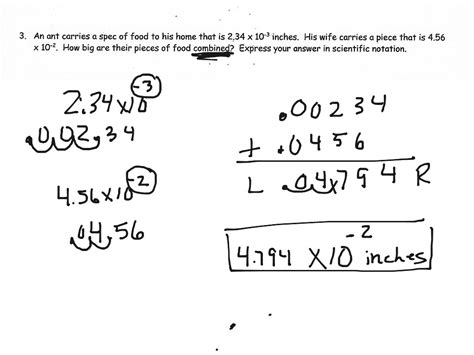 3. An ant carries a spec of food to his home that is 2.34 x 10⁻³ inches. His wife carries a piece that is 4.56
x 10⁻². How big are their pieces of food combined? Express your answer in scientific notation.
2.34x10⁻³
.002,34
4.56x10⁻²
.04,56
.00234
+ .0456
L .04x794 R
4.794 X10⁻² inches